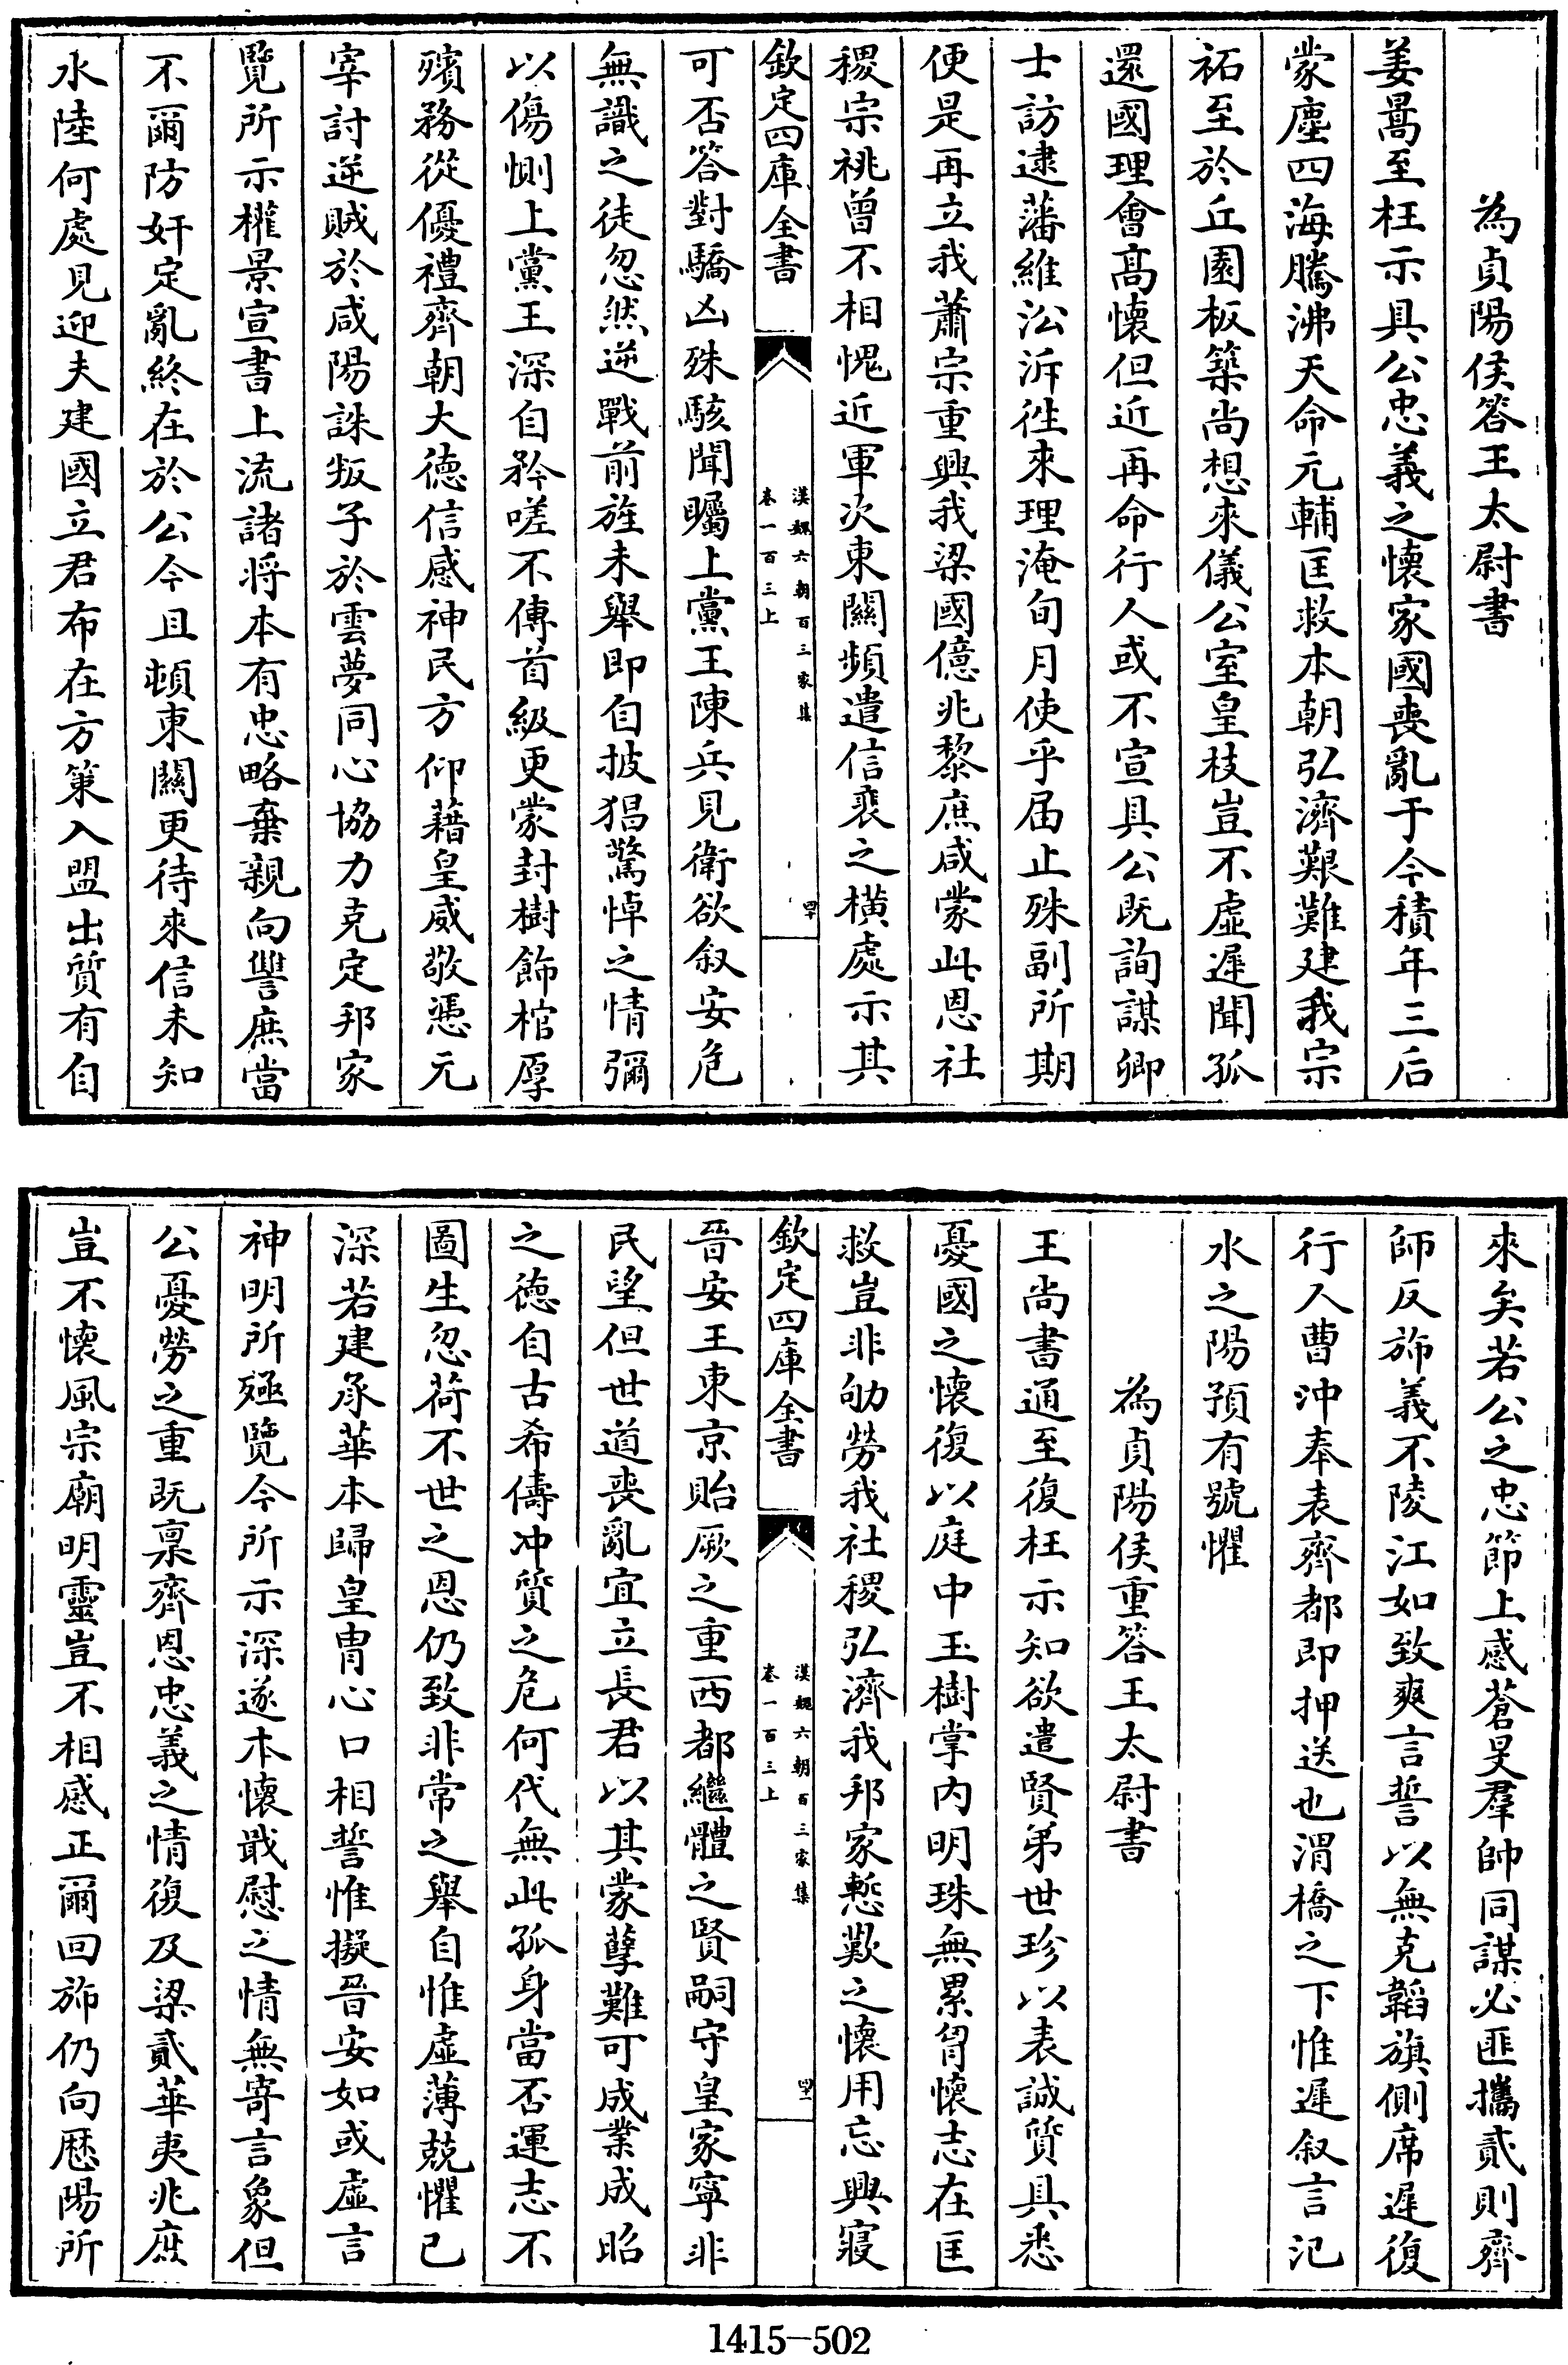 為貞陽侯答王太尉書
姜暠至枉示具公忠義之懷家國喪亂于今積年三后
蒙塵四海騰沸天命元輔匡救本朝弘濟艱難建我宗
祏至於丘園板築尚想來儀公室皇枝豈不虛遲聞孤
還國理會高懷但近再命行人或不宣具公既詢謀卿
士訪逮藩維沿泝徃來理淹旬月使乎届止殊副所期
便是再立我蕭宗重興我梁國億兆黎庶咸蒙此恩社
稷宗祧曾不相愧近軍次東關頻遣信裴之橫處示其
欽定四庫全書
漢魏六朝百三家集
卷一百三上
四十
可否答對驕凶殊駭聞矚上黨王陳兵見衛欲叙安危
無識之徒忽然逆戰前旌未舉即自披猖驚悼之情彌
以傷惻上黨王深自矜嗟不傳首級更蒙封樹飾棺厚
殯務從優禮齊朝大德信感神民方仰藉皇威敬憑元
宰討逆賊於咸陽誅叛子於雲夢同心協力克定邦家
覽所示權景宣書上流諸將本有忠略棄親向讐庶當
不爾防奸定亂終在於公今且頓東關更待來信未知
水陸何處見迎夫建國立君布在方策入盟出質有自
來矣若公之忠節上感蒼旻羣帥同謀必匪攜貳則齊
師反斾義不陵江如致爽言誓以無克韜旗側席遲復
行人曹沖奉表齊都即押送也渭橋之下惟遲叙言汜
水之陽預有號懼
為貞陽侯重答王太尉書
王尚書通至復枉示知欲遣賢弟世珍以表誠質具悉
憂國之懷復以庭中玉樹掌內明珠無累胷懷志在匡
救豈非劬勞我社稷弘濟我邦家慙歎之懷用忘興寢
欽定四庫全書
漢魏六朝百三家集
卷一百三上
四十一
晉安王東京貽厥之重西都繼體之賢嗣守皇家寧非
民望但世道喪亂宜立長君以其蒙孽難可成業成昭
之德自古希儔冲質之危何代無此孤身當否運志不
圖生忽荷不世之恩仍致非常之舉自惟虛薄兢懼已
深若建承華本歸皇冑心口相誓惟擬晉安如或虛言
神明所殛覽今所示深遂本懷戢慰之情無寄言象但
公憂勞之重既稟齊恩忠義之情復及梁貳華夷兆庶
豈不懷風宗廟明靈豈不相感正爾回斾仍向厯陽所
1415—502